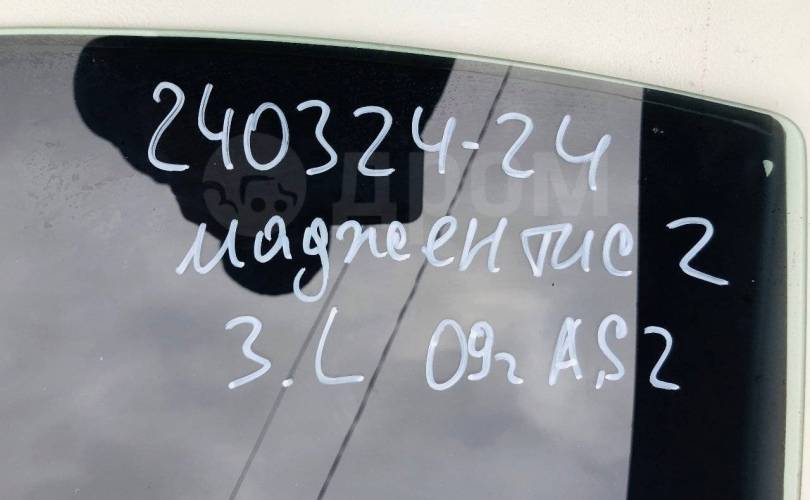 240324-24
ДРОМ
маджентис 2
3.L 09г A,S2